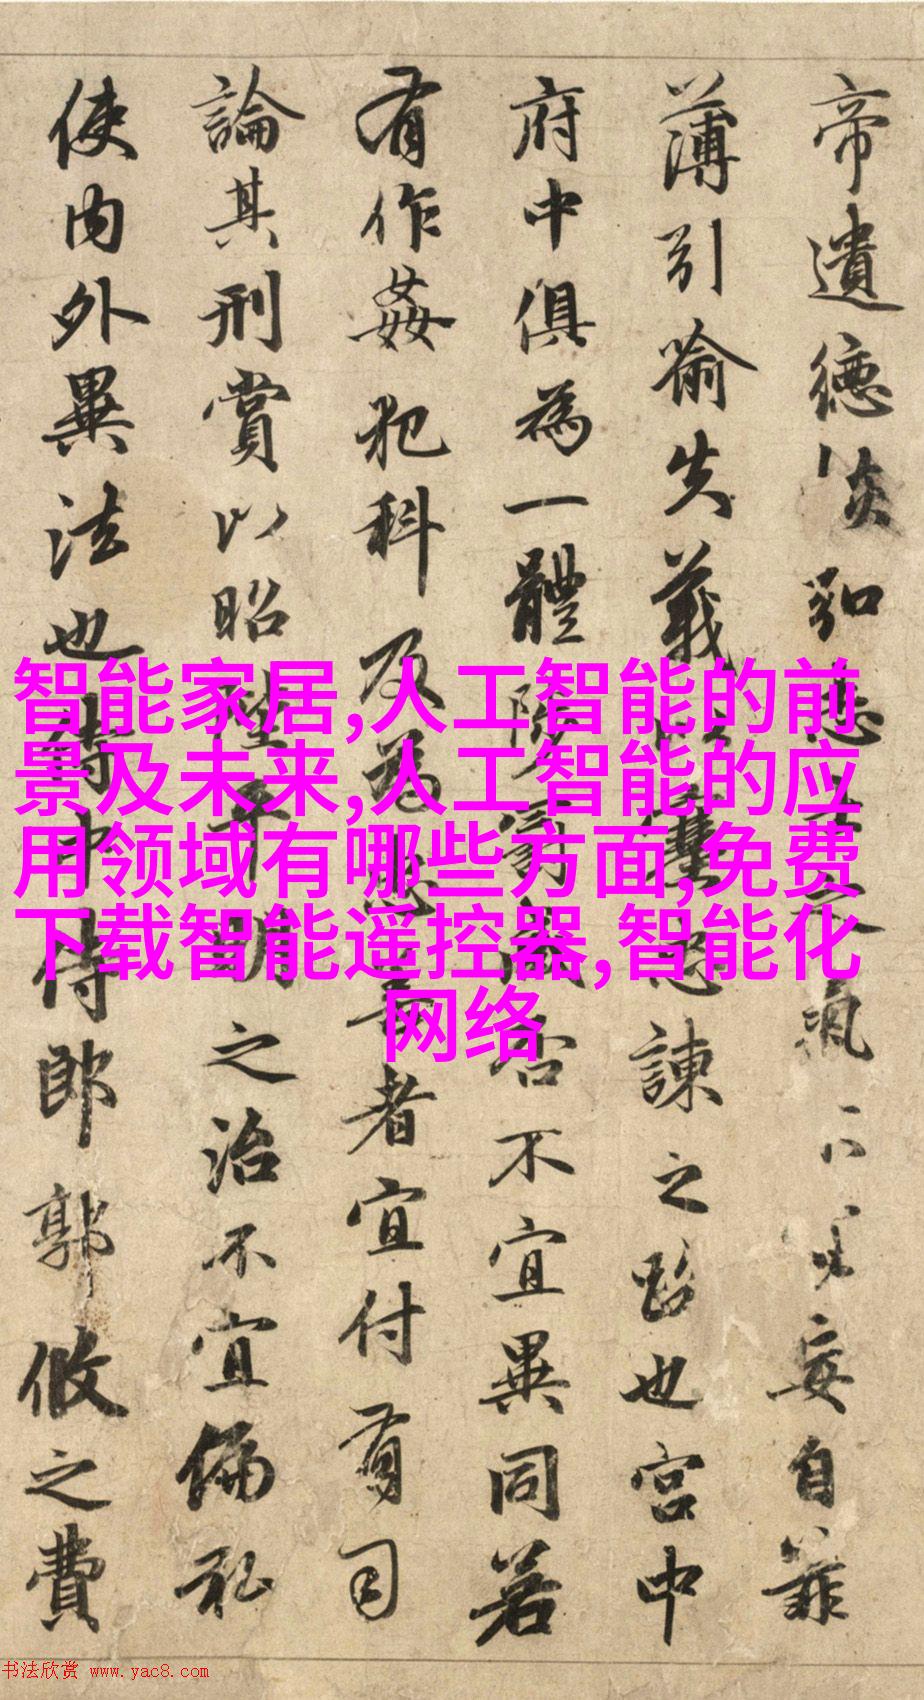 帝遺德恢弘志士之氣妄自菲
薄引喻失義以塞忠諫之路也宮中
府中俱為一體陟罰臧否不宜異同若
有作姦犯科及為忠善者宜付有司
論其刑賞以昭陛平明之治不宜偏私
使內外異法也侍中侍郎郭攸之費
智能家居,人工智能的前
景及未来,人工智能的应
用领域有哪些方面,免费
下载智能遥控器,智能化
网络
书法欣赏 www.yac8.com